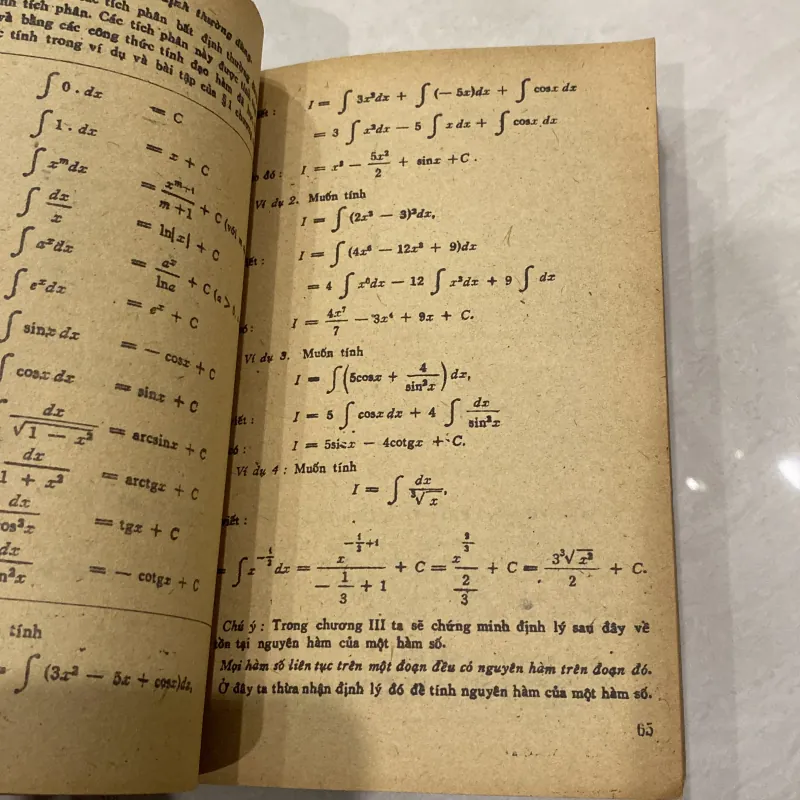 các tích phân bất định thường dùng.
tích phân. Các tích phân này được tính
và bằng các công thức tính đạo hàm đã
tính trong ví dụ và bài tập của §1 chương
∫ 0 . dx = C
∫ 1 . dx = x + C
∫ x^m dx = x^{m+1}/(m+1) + C (với m
∫ dx/x = ln|x| + C
∫ a^x dx = a^x/lna + C (a >
∫ e^x dx = e^x + C
∫ sinx dx = — cosx + C
∫ cosx dx = sinx + C
∫ dx/√(1 — x²) = arcsinx + C
dx/(1 + x²) = arctgx + C
dx/cos²x = tgx + C
dx/sin²x = — cotgx + C
tính
= ∫ (3x² — 5x + cosx)dx,
I = ∫ 3x²dx + ∫ (— 5x)dx + ∫ cosx dx
= 3 ∫ x²dx — 5 ∫ x dx + ∫ cosx dx
đó : I = x³ — 5x²/2 + sinx + C .
Ví dụ 2. Muốn tính
I = ∫ (2x³ — 3)²dx,
iết : I = ∫ (4x⁶ — 12x³ + 9)dx
= 4 ∫ x⁶dx — 12 ∫ x³dx + 9 ∫ dx
I = 4x⁷/7 — 3x⁴ + 9x + C.
Ví dụ 3. Muốn tính
I = ∫(5cosx + 4/sin²x) dx,
iết : I = 5 ∫ cosx dx + 4 ∫ dx/sin²x
I = 5sinx — 4cotgx + C.
Ví dụ 4 : Muốn tính
I = ∫ dx/³√x,
viết :
= ∫ x^{-1/3} dx = x^{-1/3+1}/(-1/3 + 1) + C = x^{2/3}/(2/3) + C = 3³√x²/2 + C.
Chú ý : Trong chương III ta sẽ chứng minh định lý sau đây về
tồn tại nguyên hàm của một hàm số.
Mọi hàm số liên tục trên một đoạn đều có nguyên hàm trên đoạn đó.
Ở đây ta thừa nhận định lý đó để tính nguyên hàm của một hàm số.
65